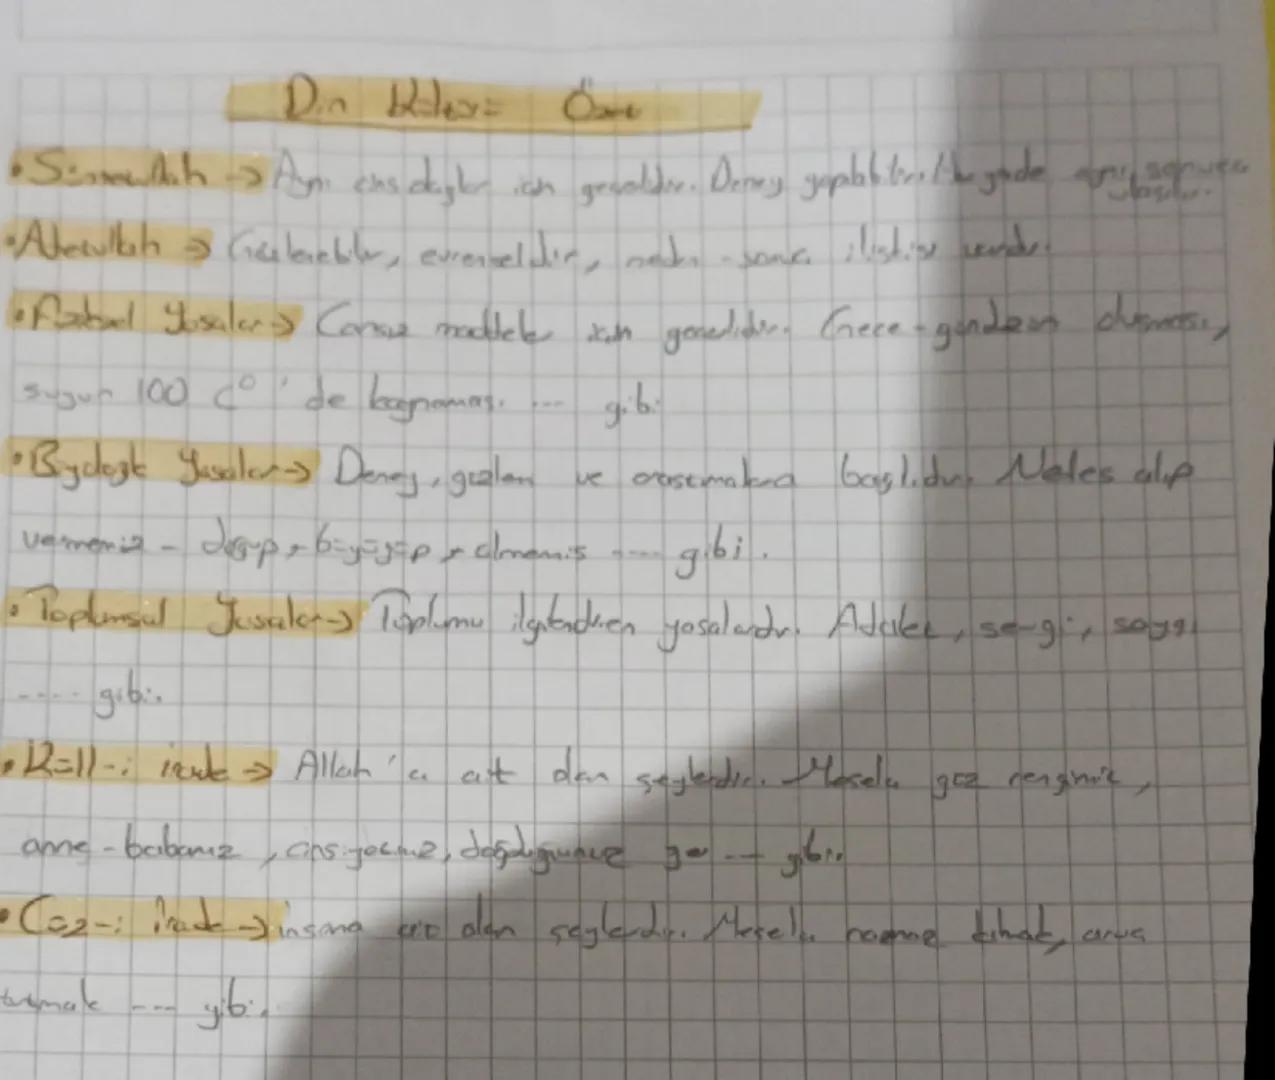 Din Kültürü Özet
• Sünnetullah → Aynı cins olaylar için geçerlidir. Deney yapılabilir. Her yerde aynı sonuca
ulaşılır.
• Adetullah → Gözlenebilir, evrenseldir, neden-sonuç ilişkisi vardır.
• Fiziksel Yasalar → Cansız maddeler için geçerlidir. Gece-gündüzün oluşması,
suyun 100 C° 'de kaynaması .... gibi
• Biyolojik Yasalar → Deney, gözlem ve araştırmalara bağlıdır. Nefes alıp
vermemiz - doğup, büyüyüp, ölmemiz .... gibi.
• Toplumsal Yasalar → Toplumu ilgilendiren yasalardır. Adalet, sevgi, saygı
.... gibi.
• Küllî irade → Allah'a ait olan şeylerdir. Mesela göz rengimiz,
anne-babamız, cinsiyetimiz, doğduğumuz yer ... gibi.
• Cüzî irade → insana ait olan şeylerdir. Mesela namaz kılmak, oruç
tutmak ... gibi.